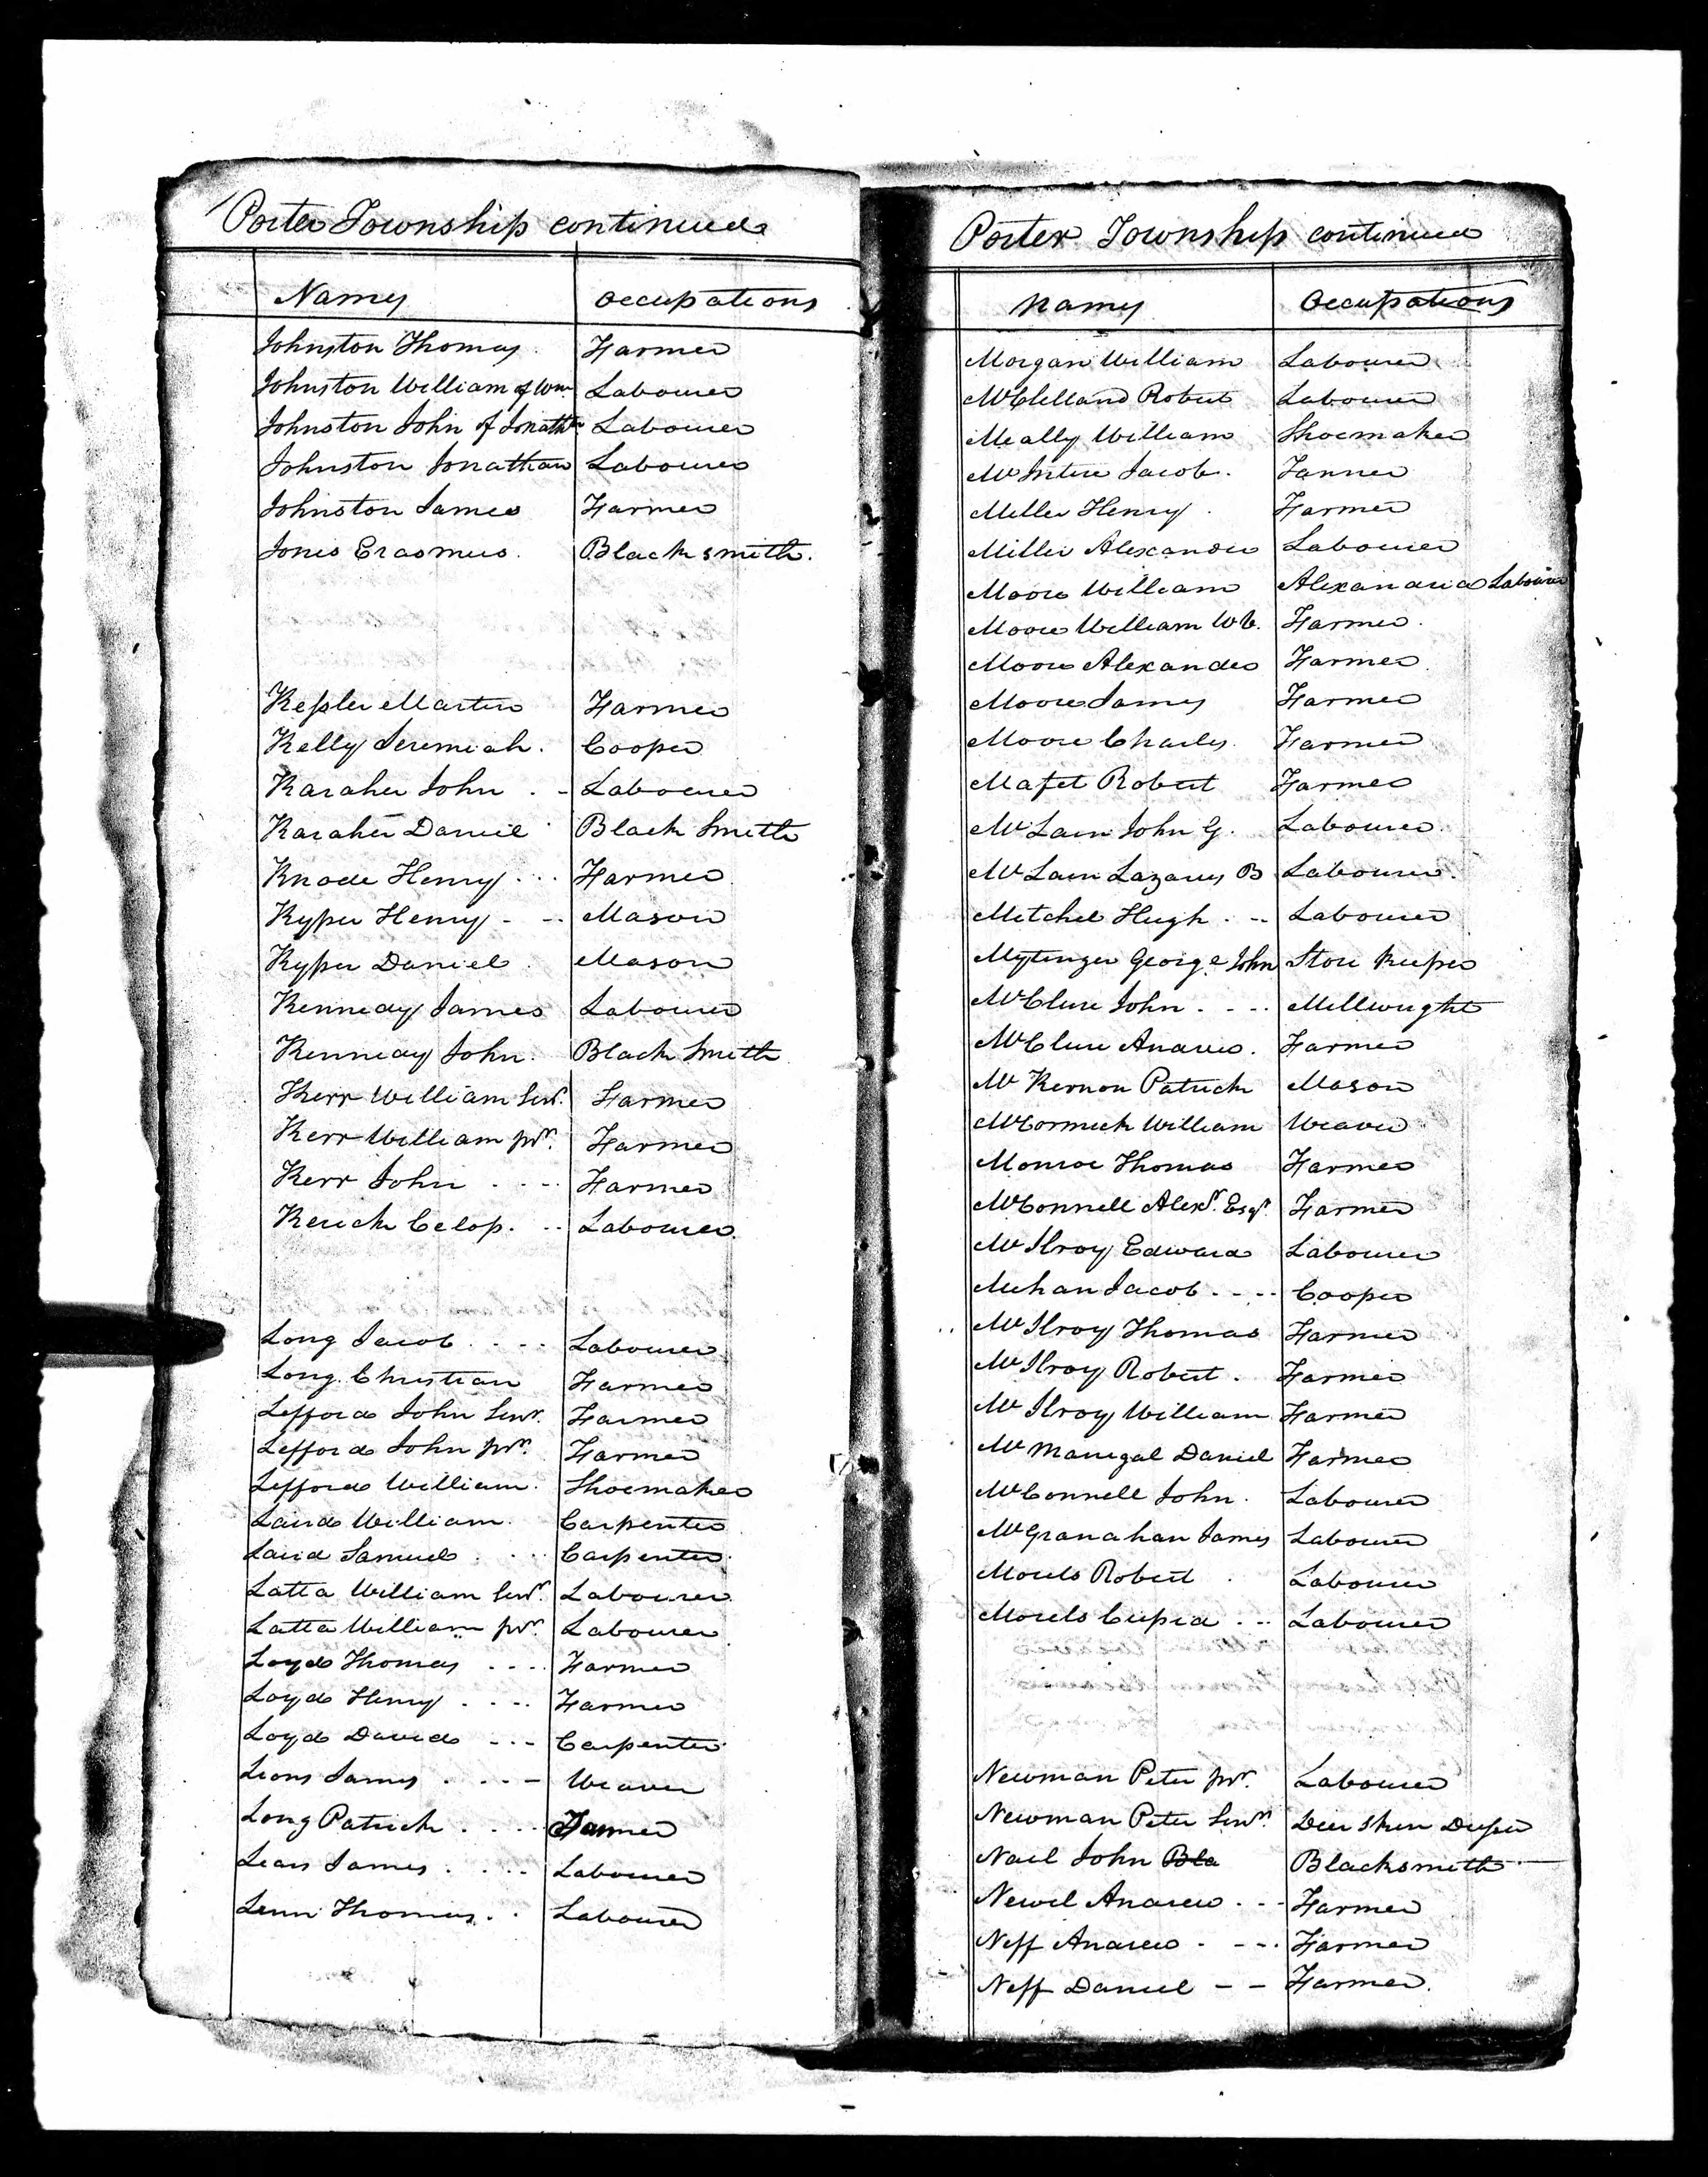 Porter Township continued
Names Occupations
Johnston Thomas Farmer
Johnston William of Wm. Labourer
Johnston John of Jonathn. Labourer
Johnston Jonathan Labourer
Johnston James Farmer
Jones Erasmus. Blacksmith.
Kessler Martin Farmer
Kelly Jeremiah. Cooper
Karaher John Labourer
Karaher Daniel Black Smith
Knode Henry Farmer
Kyper Henry Mason
Kyper Daniel Mason
Kennedy James Labourer
Kennedy John. Black Smith
Kerr William Senr. Farmer
Kerr William Jnr. Farmer
Kerr John Farmer
Labourer
Long Jacob Labourer
Long Christian Farmer
Lefford John Senr. Farmer
Lefford John Jnr. Farmer
Lefford William. Shoemaker
Laird William. Carpenter
Laird Samuel Carpenter
Latta William Senr. Labourer
Latta William Jnr. Labourer
Loyd Thomas Farmer
Loyd Henry Farmer
Loyd David Carpenter
Lions James Weaver
Long Patrick Farmer
Lears James Labourer
Lenn Thomas Labourer
Porter Township continued
Names Occupations
Morgan William Labourer
McClelland Robert Labourer
Meally William Shoemaker
McIntire Jacob. Tanner
Miller Henry Farmer
Miller Alexander Labourer
Moore William Alexandria Labourer
Moore William Farmer
Moore Alexander Farmer
Moore James Farmer
Moore Charles Farmer
Mafet Robert Farmer
McLain John G. Labourer
McLain Lazarus B Labourer
Mitchel Hugh Labourer
Mytinger George John Store Keeper
McClure John Millwright
McClure Andrew. Farmer
McKernon Patrick Mason
McCormick William Weaver
Monroe Thomas Farmer
McConnell Alexr. Esqr. Farmer
McIlroy Edward Labourer
Mehan Jacob Cooper
McIlroy Thomas Farmer
McIlroy Robert. Farmer
McIlroy William Farmer
McManigal Daniel Farmer
McConnell John. Labourer
McGranahan James Labourer
Robert Labourer
Labourer
Newman Peter Jnr. Labourer
Newman Peter Senr. Deer Skin Dresser
Nail John Bla Blacksmith
Newel Andrew Farmer
Neff Andrew Farmer
Neff Daniel Farmer.